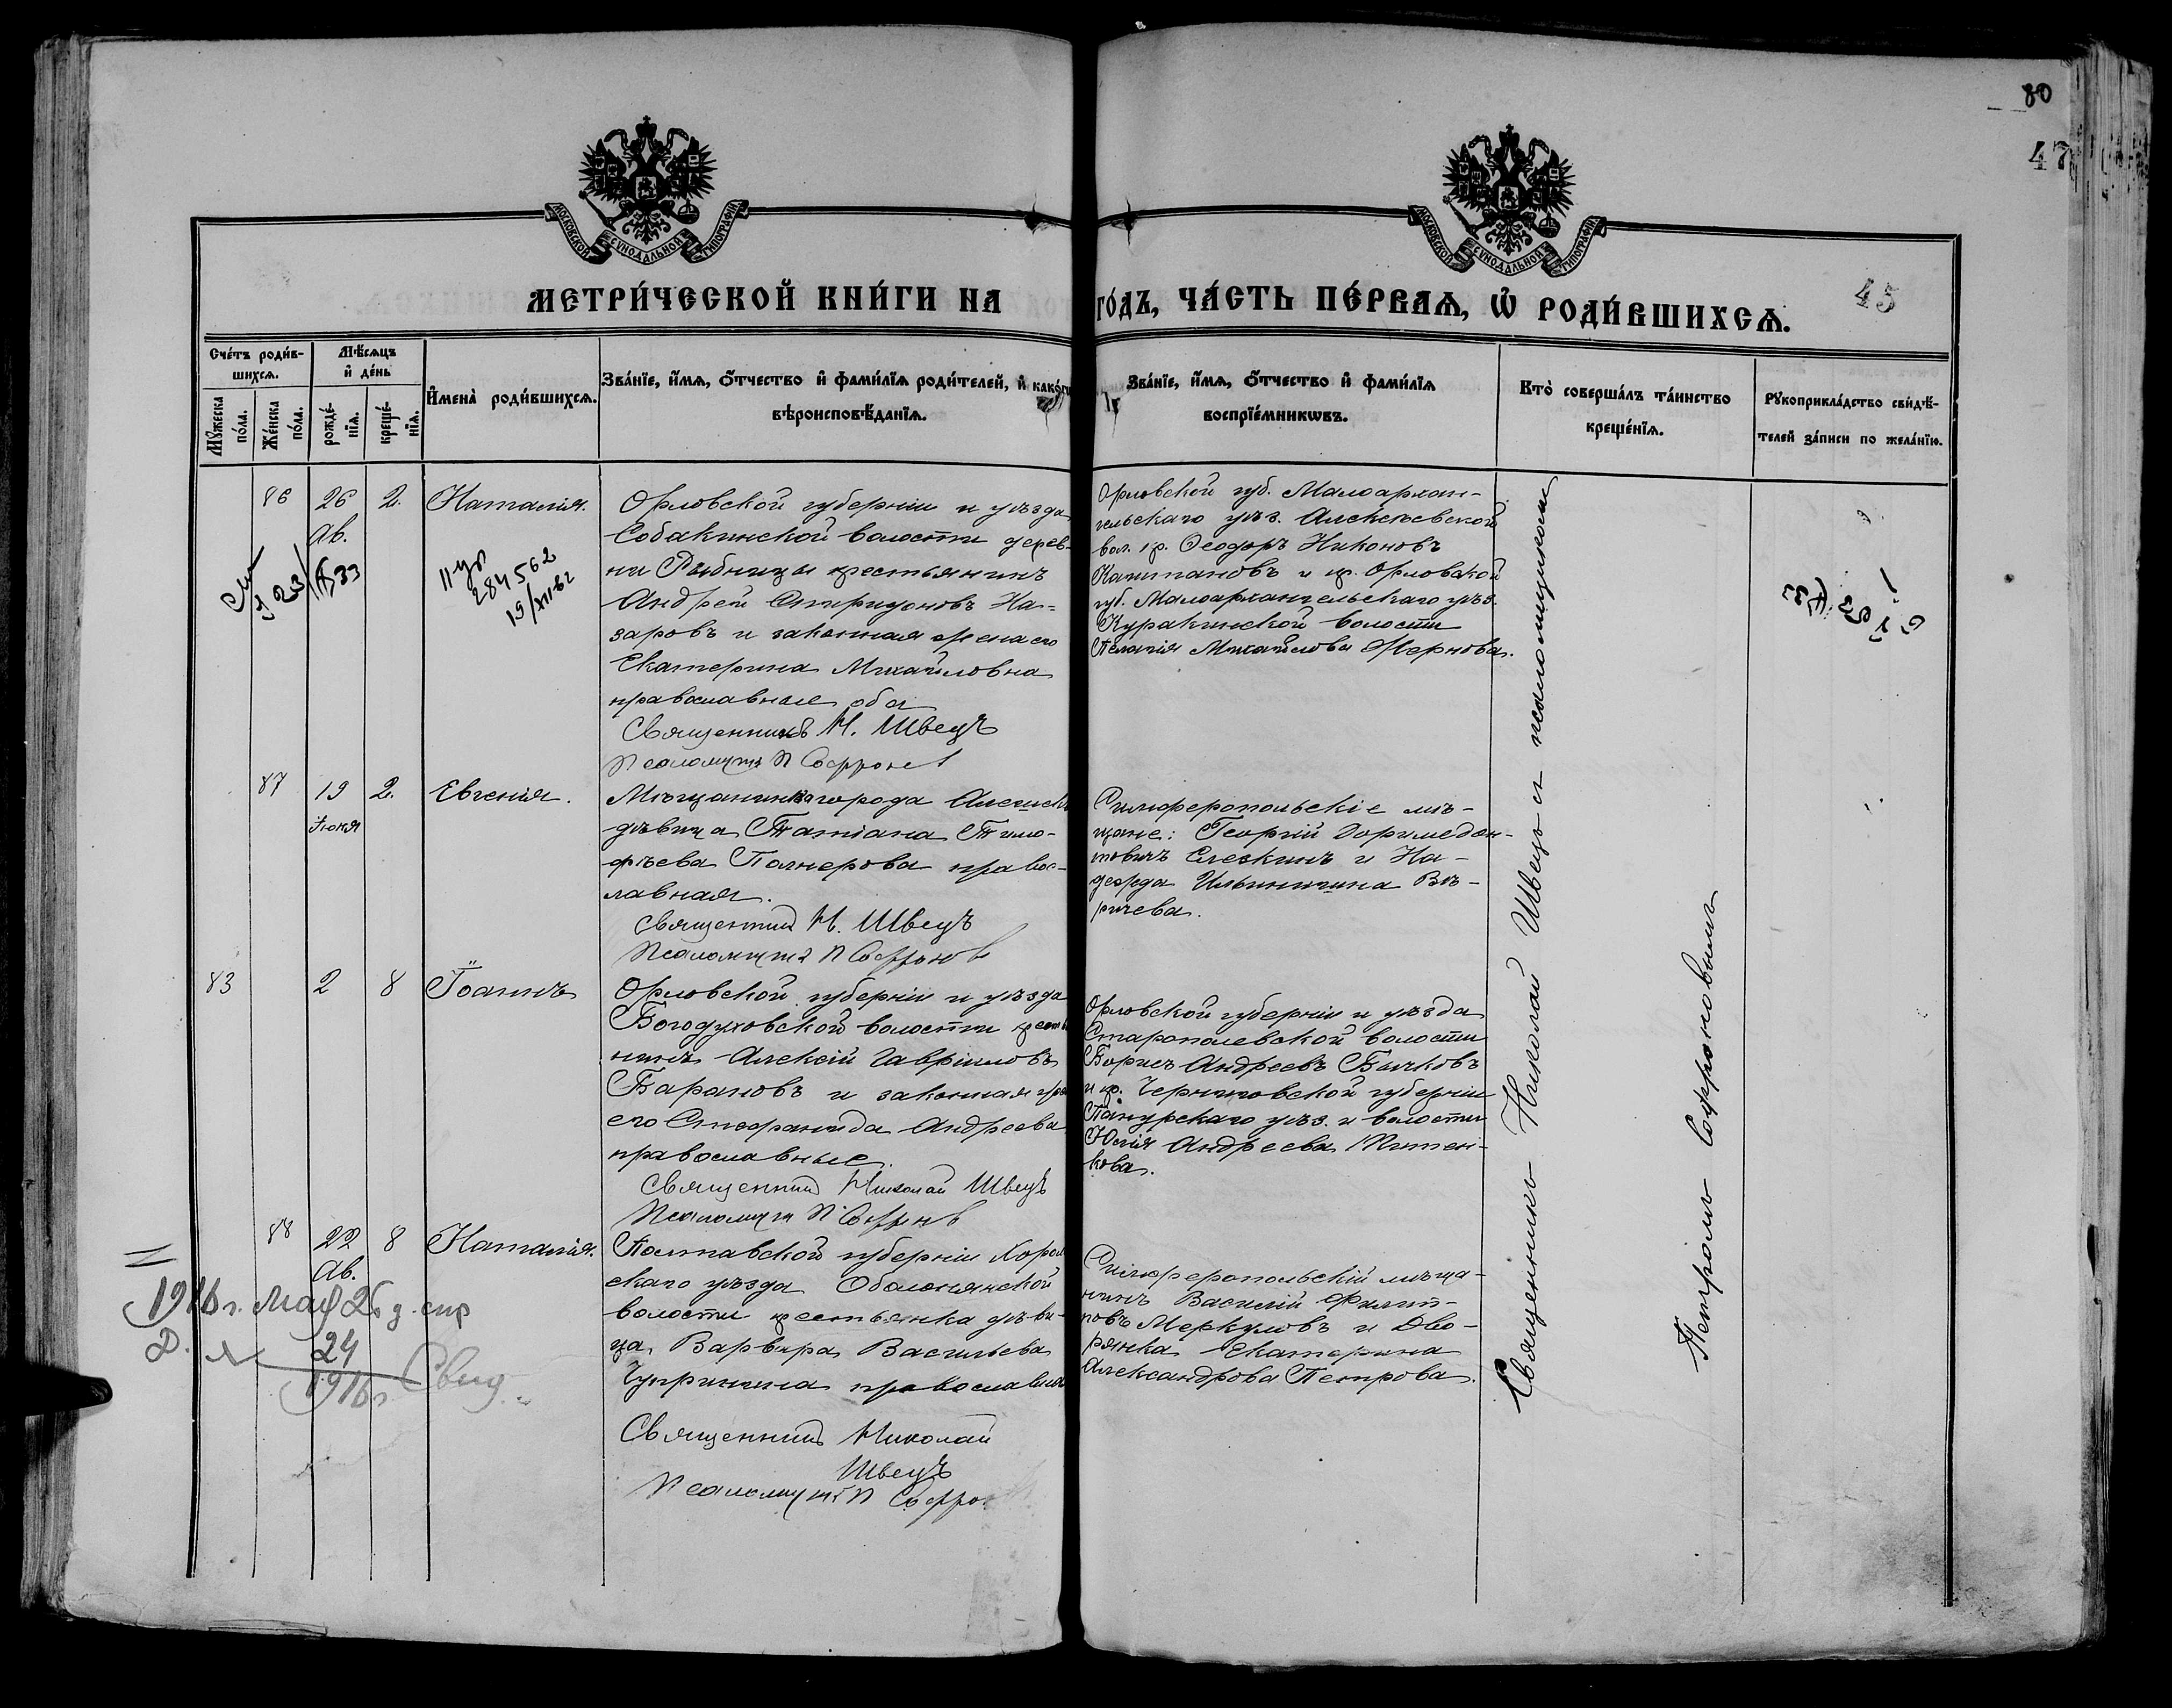 80
47
45
МОСКОВСКОЙ СУНОДАЛЬНОЙ ТИПОГРАФІИ
МОСКОВСКОЙ СУНОДАЛЬНОЙ ТИПОГРАФІИ
МЕТРИ́ЧЕСКОЙ КНИ́ГИ НА
ГО́ДЪ, ЧА́СТЬ ПЕ́РВАѦ, Ѽ РОДИ́ВШИХСѦ.
Сче́тъ роди́в-
шихсѧ.
Мꙋжеска по́ла.
Же́нска по́ла.
Мѣ́сѧцъ
и҆ де́нь
рожде́-
нїѧ.
креще́-
нїѧ.
И҆мена̀ роди́вшихсѧ.
Зва́нїе, и҆́мѧ, ѻ҆́тчество и҆ фами́лїѧ роди́телей, и҆ како́гѡ
вѣроисповѣ́данїѧ.
Зва́нїе, и҆́мѧ, ѻ҆́тчество и҆ фами́лїѧ
воспрїе́мникѡвъ.
Кто̀ соверша́лъ та́инство
креще́нїѧ.
Рꙋкоприкла́дство свидѣ́-
телей за́писи по жела́нїю.
86
26
Ав.
2.
Наталія.
284562
19/XII-62
Орловской губерніи и уѣзда
Собакинской волости дерев-
ни Рыбницы крестьянинъ
Андрей Спиридоновъ На-
заровъ и законная жена его
Екатерина Михайловна
православные оба
Священникъ Н. Швецъ
Псаломщ П Софронов
Орловской губ. Малоархан-
гельскаго уѣз. Алексѣевской
вол. кр. Ѳеодоръ Никоновъ
Капитановъ и кр. Орловской
губ. Малоархангельскаго уѣз.
Куракинской волости
Пелагія Михайлова Жернова.
87
19
Іюня
2.
Евгенія.
Мѣщанинка города Алешекъ
дѣвица Татіана Тимо-
фѣева Палнерова правос-
лавная.
Священник Н. Швецъ
Псаломщикъ П Софронов
Симферопольскіе мѣ-
щане: Георгій Доримедон-
товичъ Слезкинъ и На-
дежда Ильинична Вѣ-
ричева.
83
2
8
Іоаннъ
Орловской губерніи и уѣзда
Богодуховской волости крестья
нинъ Алексій Гавріиловъ
Барановъ и законная жена
его Стефанида Андреева
православные.
Священник Николай Швецъ
Псаломщик П. Софронов
Орловской губерніи и уѣзда
Старополевской волости
Борисъ Андреевъ Бычковъ
и кр. Черниговской губерніи
уѣз. и волости
Юлія Андреева
кова.
88
22
Ав.
8
Наталія.
Полтавской губерніи Хороль
скаго уѣзда Оболонянской
волости крестьянка дѣви-
ца, Варвара Васильева
Чуприна православная
Священникъ Николай
Швецъ
Псаломщикъ П Софро
Симферопольскій мѣща-
нинъ Василій Филип-
повъ Меркуловъ и Дво-
рянка Екатерина
Александрова Петрова.
1916 г. Мая 26 д. спр
24
1916 г. Свид.
Священникъ Николай Швецъ съ псаломщикомъ
Петромъ Софроновымъ